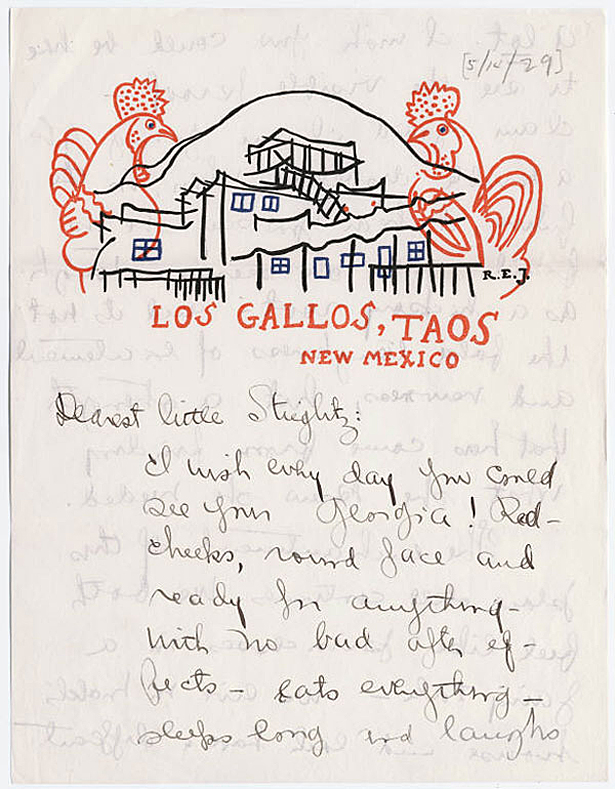 [5/14/29]
R.E.J.
LOS GALLOS, TAOS
NEW MEXICO
Dearest little Stieglitz:
I wish every day you could
see your Georgia! Red-
cheeks, round face and
ready for anything-
with no bad after ef-
fects - Eats everything -
sleeps long and laughs